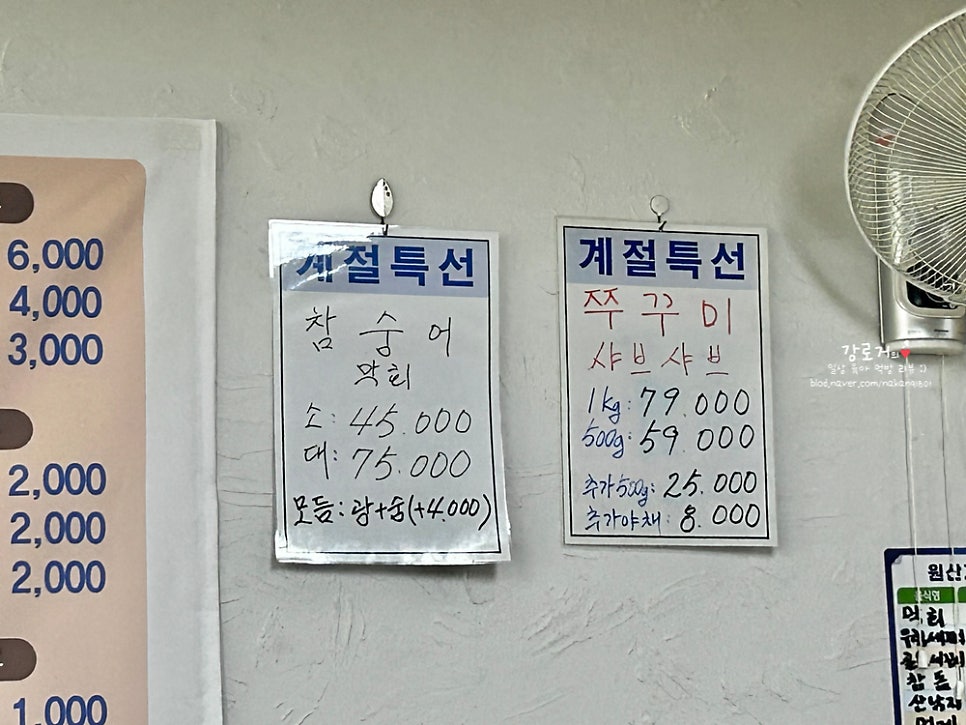 6,000
4,000
3,000
2,000
2,000
2,000
1,000
계절특선
참숭어
막회
소: 45.000
대: 75.000
모듬: 광+숭(+4.000)
계절특선
쭈꾸미
샤브샤브
1kg: 79.000
500g: 59.000
추가500g: 25.000
추가야채: 8.000
강로거의♥
일상 육아 먹방 리뷰 :)
blog.naver.com/nakang1801
원산
음식명
막회
참돔
산낙지